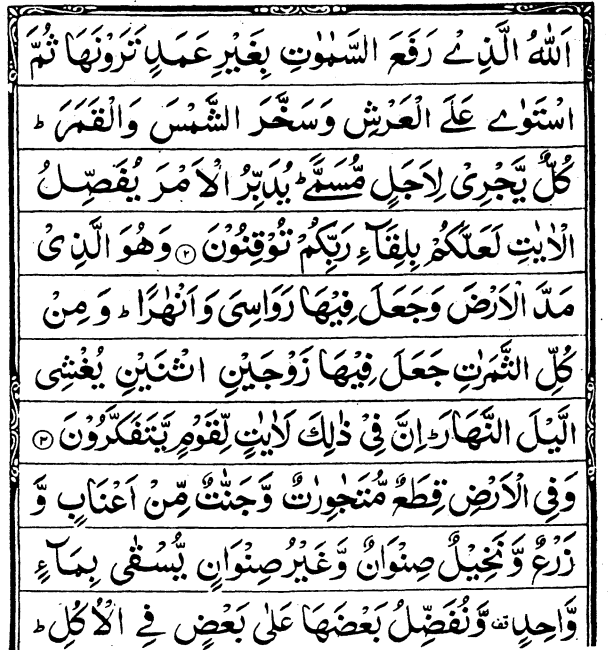 اَللّٰهُ الَّذِیْ رَفَعَ السَّمٰوٰتِ بِغَیْرِ عَمَدٍ تَرَوْنَهَا ثُمَّ
اسْتَوٰی عَلَی الْعَرْشِ وَسَخَّرَ الشَّمْسَ وَالْقَمَرَ ؕ
كُلٌّ یَّجْرِیْ لِاَجَلٍ مُّسَمًّی ؕ یُدَبِّرُ الْاَمْرَ یُفَصِّلُ
الْاٰیٰتِ لَعَلَّكُمْ بِلِقَآءِ رَبِّكُمْ تُوْقِنُوْنَ ﴿۲﴾ وَهُوَ الَّذِیْ
مَدَّ الْاَرْضَ وَجَعَلَ فِیْهَا رَوَاسِیَ وَاَنْهٰرًا ؕ وَمِنْ
كُلِّ الثَّمَرٰتِ جَعَلَ فِیْهَا زَوْجَیْنِ اثْنَیْنِ یُغْشِی
الَّیْلَ النَّهَارَ ؕ اِنَّ فِیْ ذٰلِكَ لَاٰیٰتٍ لِّقَوْمٍ یَّتَفَكَّرُوْنَ ﴿۳﴾
وَفِی الْاَرْضِ قِطَعٌ مُّتَجٰوِرٰتٌ وَّجَنّٰتٌ مِّنْ اَعْنَابٍ وَّ
زَرْعٌ وَّنَخِیْلٌ صِنْوَانٌ وَّغَیْرُ صِنْوَانٍ یُّسْقٰی بِمَآءٍ
وَّاحِدٍ ۫ وَّنُفَضِّلُ بَعْضَهَا عَلٰی بَعْضٍ فِی الْاُكُلِ ؕ